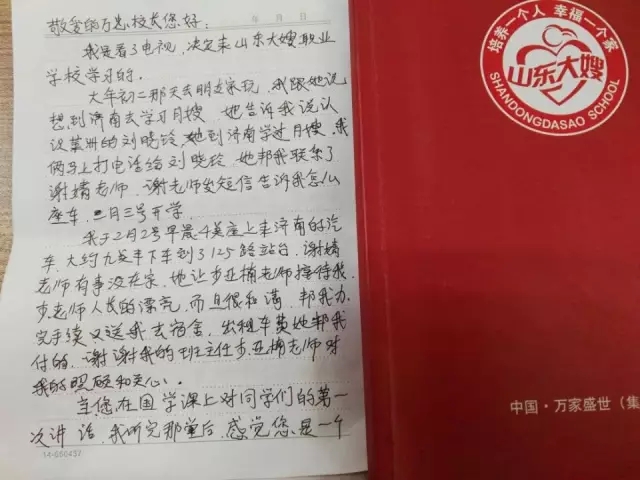 敬爱的万总,校长您好:
年 月 日
我是看了电视,决定来山东大嫂职业
学校学习的。
大年初二那天去朋友家玩,我跟她说
想到济南去学习月嫂,她告诉我说认
识莱州的刘晓玲,她到济南学过月嫂,我
俩马上打电话给刘晓玲,她帮我联系了
谢婧老师,谢老师发短信告诉我怎么
座车,二月三号开学。
我于2月2号早晨4点座上来济南的汽
车,大约九点半下车到了125路站台,谢婧
老师有事没在家,她让步亚楠老师接待我,
步老师人长的漂亮,而且很和蔼,帮我办
完手续又送我去宿舍,出租车费她帮我
付的,谢谢我的班主任步亚楠老师对
我的照顾和关心。
当您在国学课上对同学们的第一
次讲话,我听完那堂后,感觉您是一个
培养一个人 幸福一个家
山东大嫂
SHANDONGDASAO SCHOOL
中国·万家盛世(集